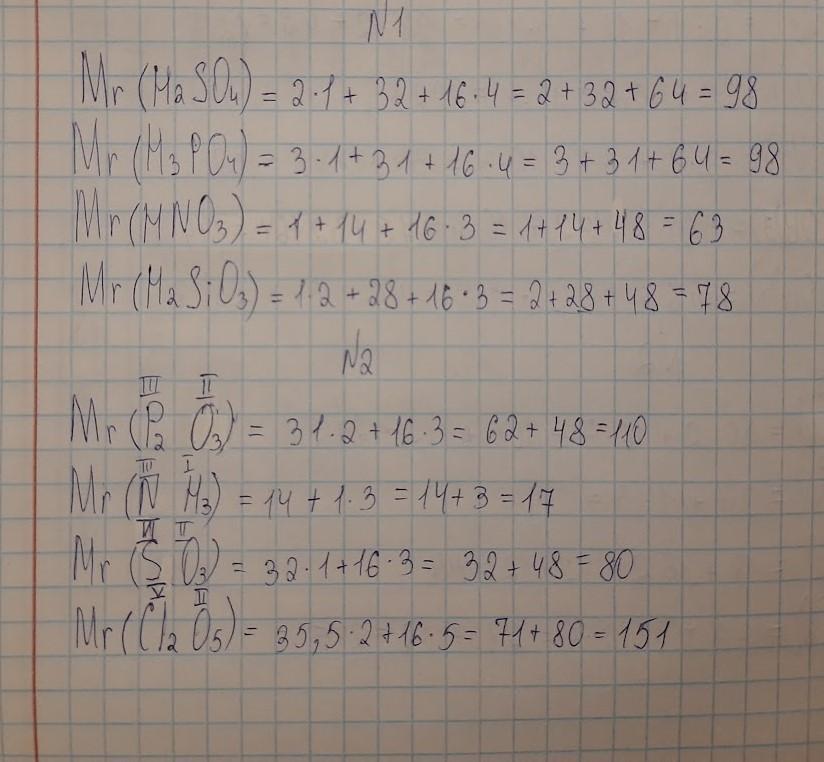 N1
Mr (H2SO4) = 2·1 + 32 + 16·4 = 2 + 32 + 64 = 98
Mr (H3PO4) = 3·1 + 31 + 16·4 = 3 + 31 + 64 = 98
Mr (HNO3) = 1 + 14 + 16·3 = 1+14+48 = 63
Mr (H2SiO3) = 1·2 + 28 + 16·3 = 2+28+48 = 78
N2
III II
Mr (P2 O3) = 31·2 + 16·3 = 62 + 48 = 110
III I
Mr (N H3) = 14 + 1·3 = 14 + 3 = 17
VI II
Mr (S O3) = 32·1+16·3 = 32 + 48 = 80
V II
Mr (Cl2 O5) = 35,5·2+16·5 = 71 + 80 = 151